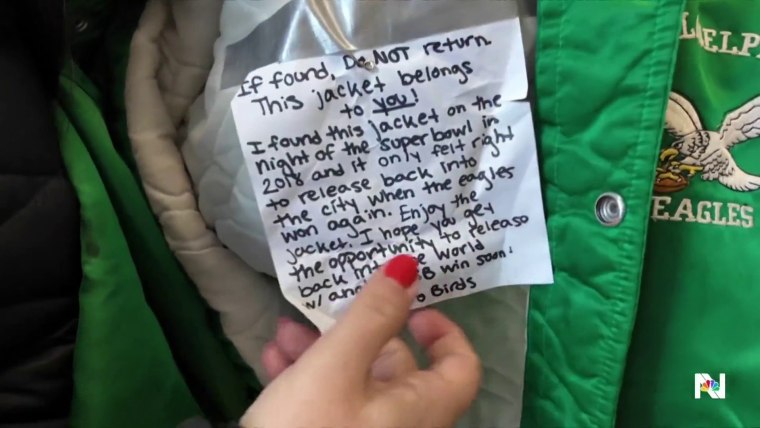 If found, Do NOT return
This jacket belongs
to you!
I found this jacket on the
night of the superbowl in
2018 and it only felt right
to release back into
the city when the eagles
won again. Enjoy the
jacket. I hope you get
the opportunity to release
back into World
w/ SB win soon!
Birds
EAGLES